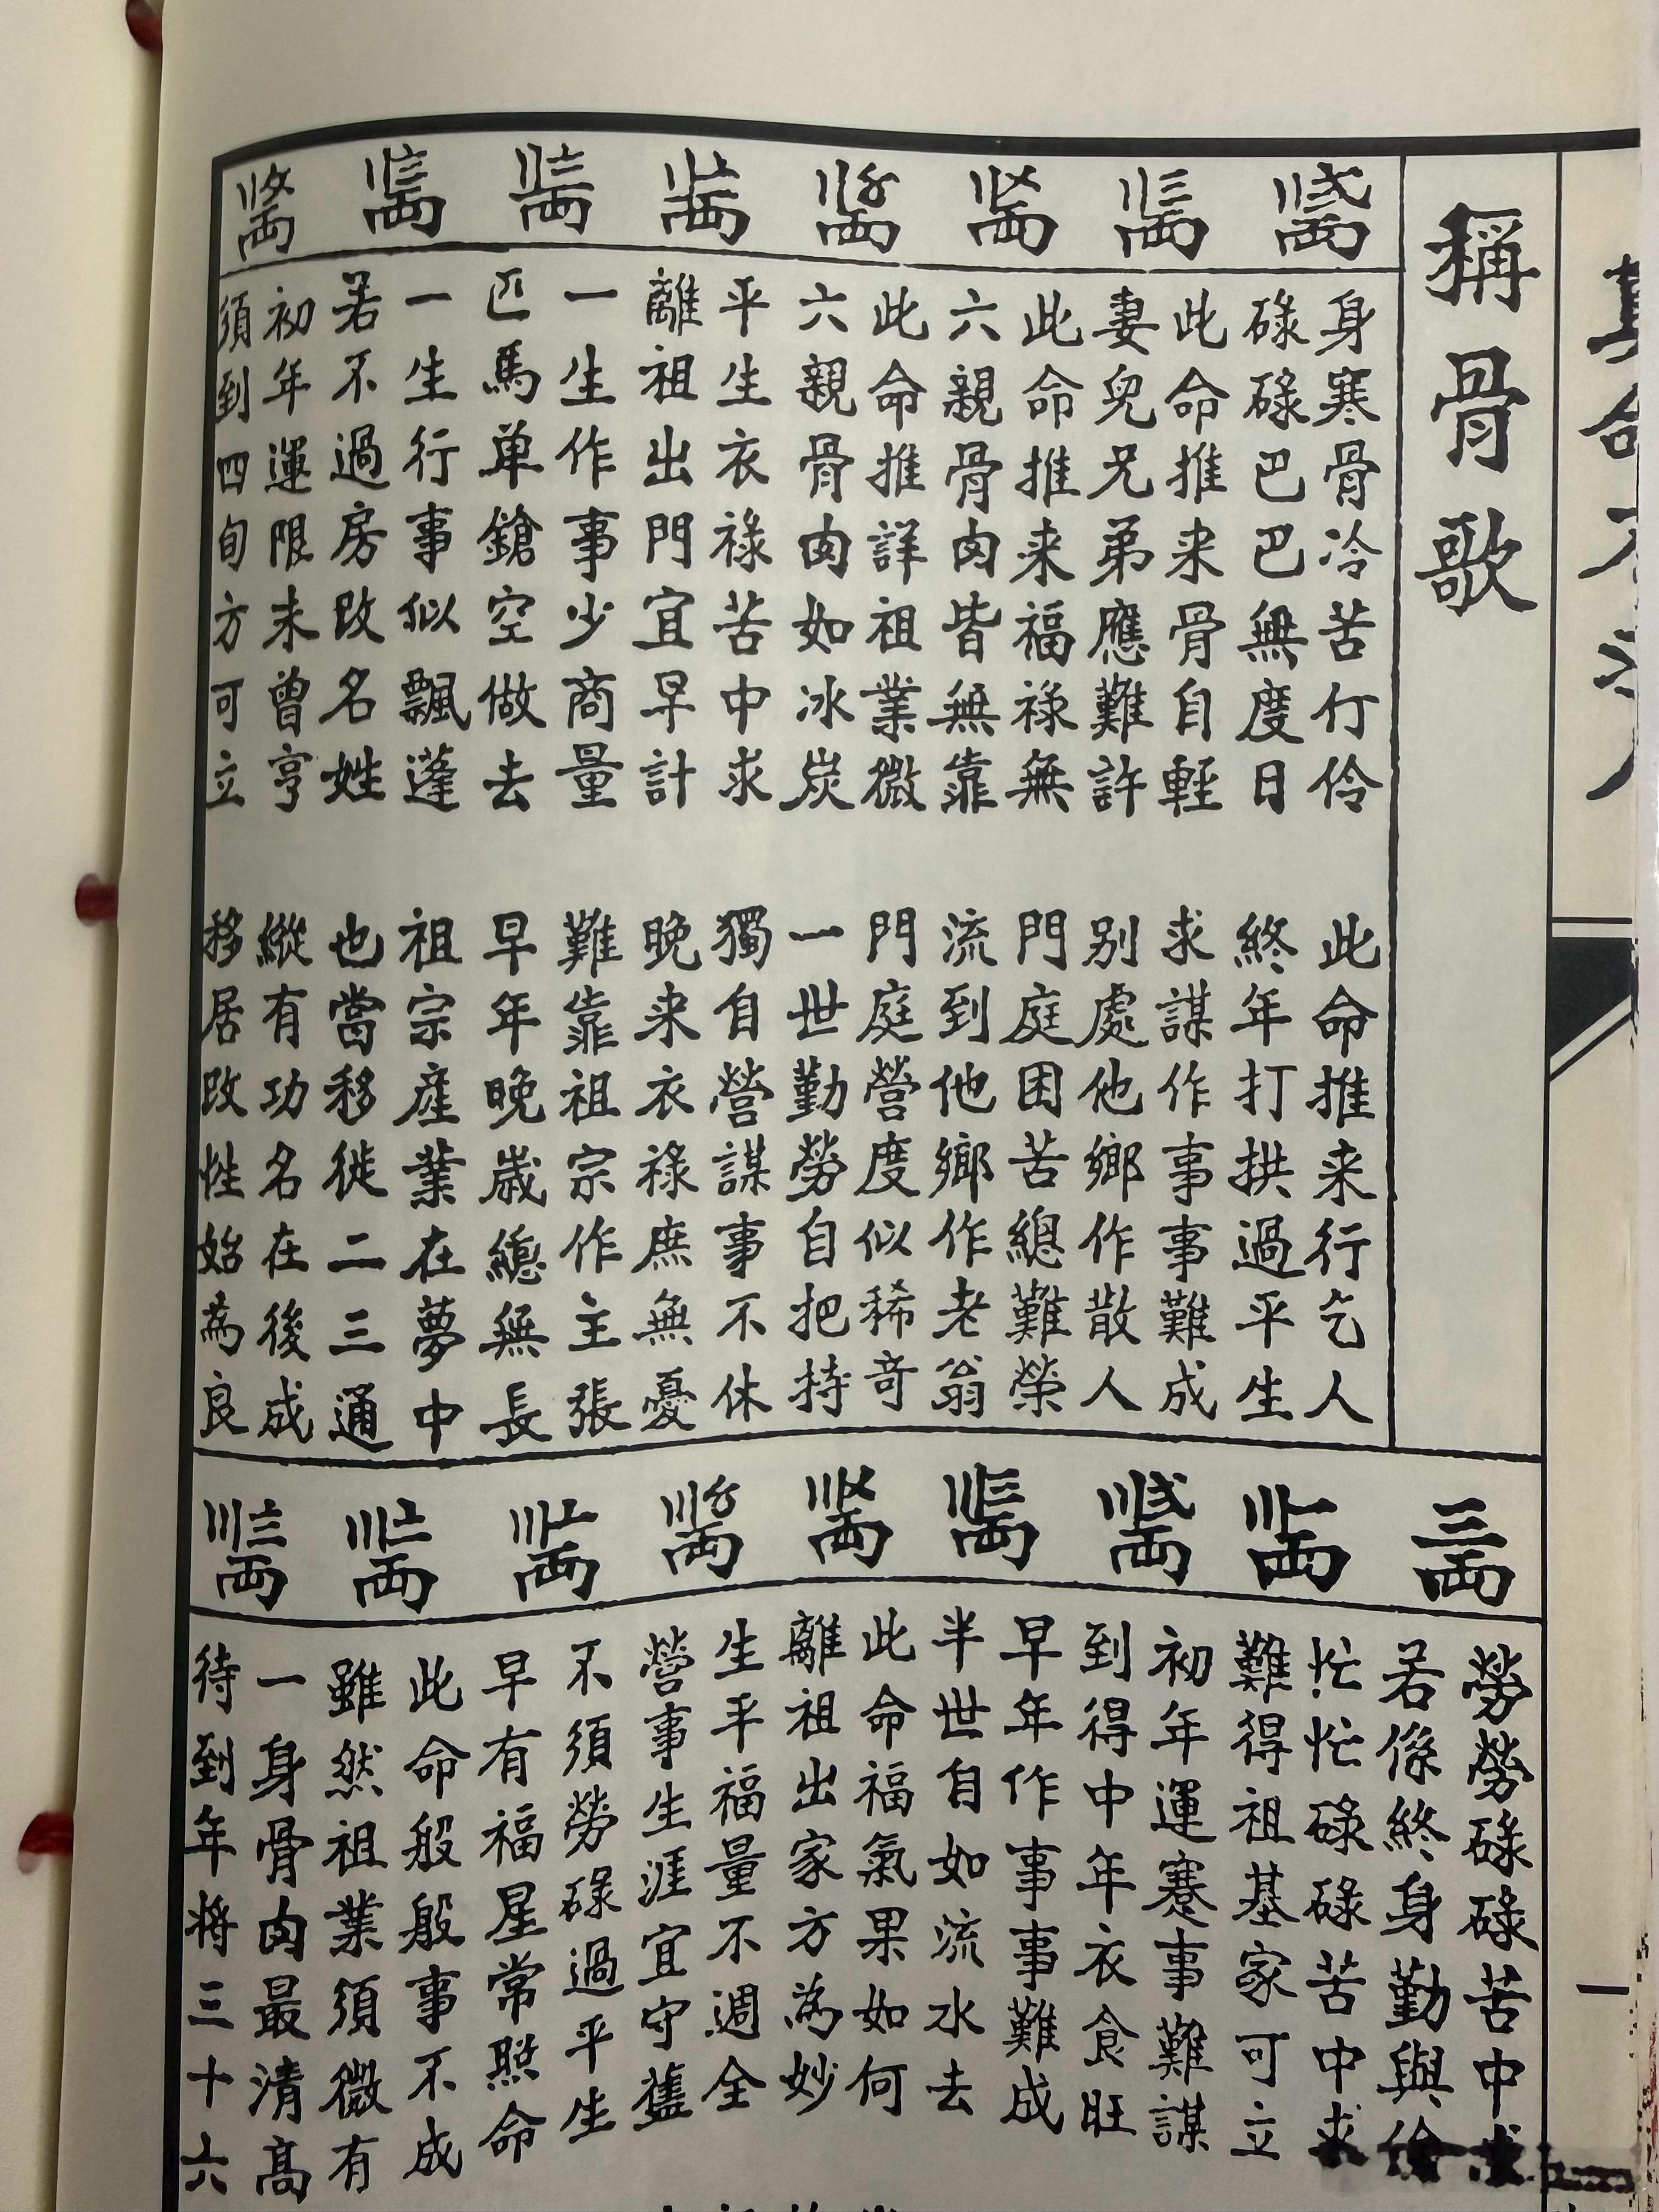 稱骨歌
身寒骨冷苦仃伶 此命推来行乞人
碌碌巴巴無度日 終年打拱過平生
此命推来骨自輕 求謀作事事難成
妻兒兄弟應難許 别處他鄉作散人
此命推来福祿無 門庭困苦總難榮
六親骨肉皆無靠 流到他鄉作老翁
此命推詳祖業微 門庭營度似稀奇
六親骨肉如冰炭 一世勤勞自把持
平生衣祿苦中求 獨自營謀事不休
離祖出門宜早計 晚来衣祿庶無憂
一生作事少商量 難靠祖宗作主張
匹馬单鎗空做去 早年晚歲總無長
一生行事似飄蓬 祖宗產業在夢中
若不過房改名姓 也當移徙二三通
初年運限未曾亨 縱有功名在後成
須到四旬方可立 移居改性始為良
勞勞碌碌苦中
若係終身勤與
忙忙碌碌苦中求
難得祖基家可立
初年運蹇事難謀
到得中年衣食旺
早年作事事難成
半世自如流水去
此命福氣果如何
離祖出家方為妙
生平福量不週全
營事生涯宜守舊
不須勞碌過平生
早有福星常照命
此命般般事不成
雖然祖業須微有
一身骨肉最清高
待到年将三十六
一